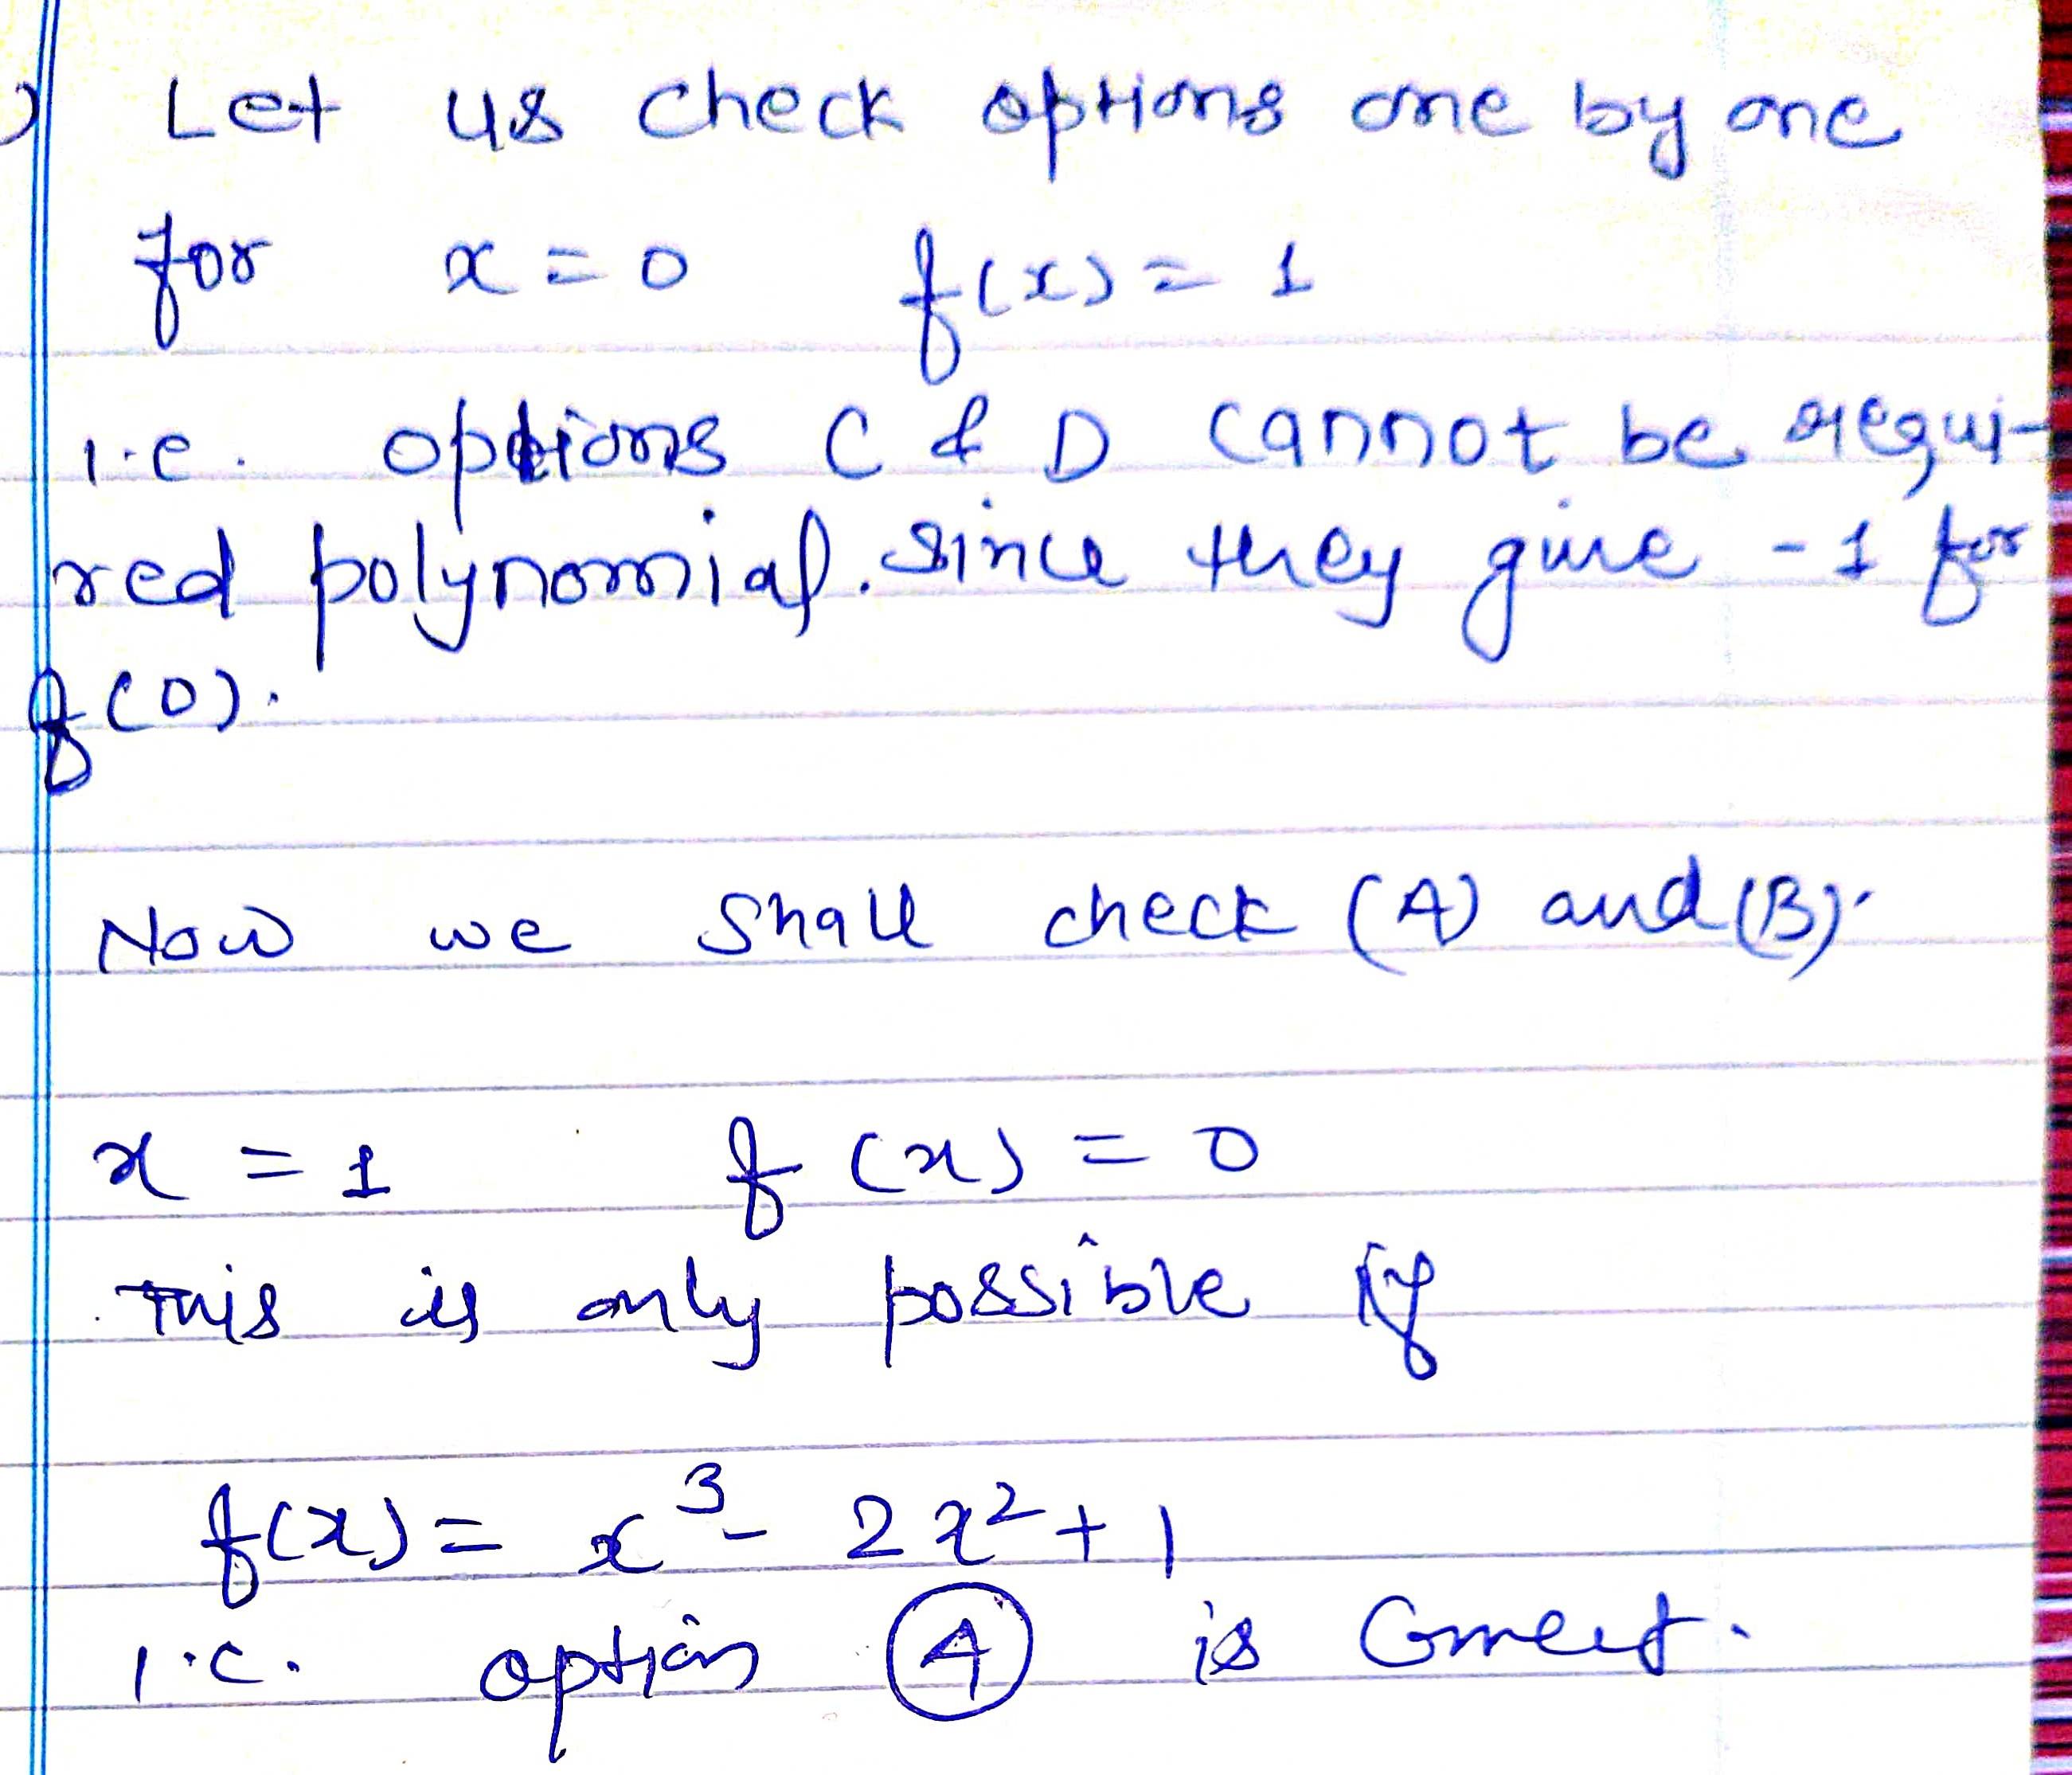 Let us check options one by one
for x = 0 f(x) = 1
i.e. options C & D cannot be requi-
red polynomial. Since they give -1 for
f(0).
Now we shall check (A) and (B).
x = 1 f(x) = 0
This is only possible if
f(x) = x³ - 2x² + 1
i.e. option Ⓐ is Correct.